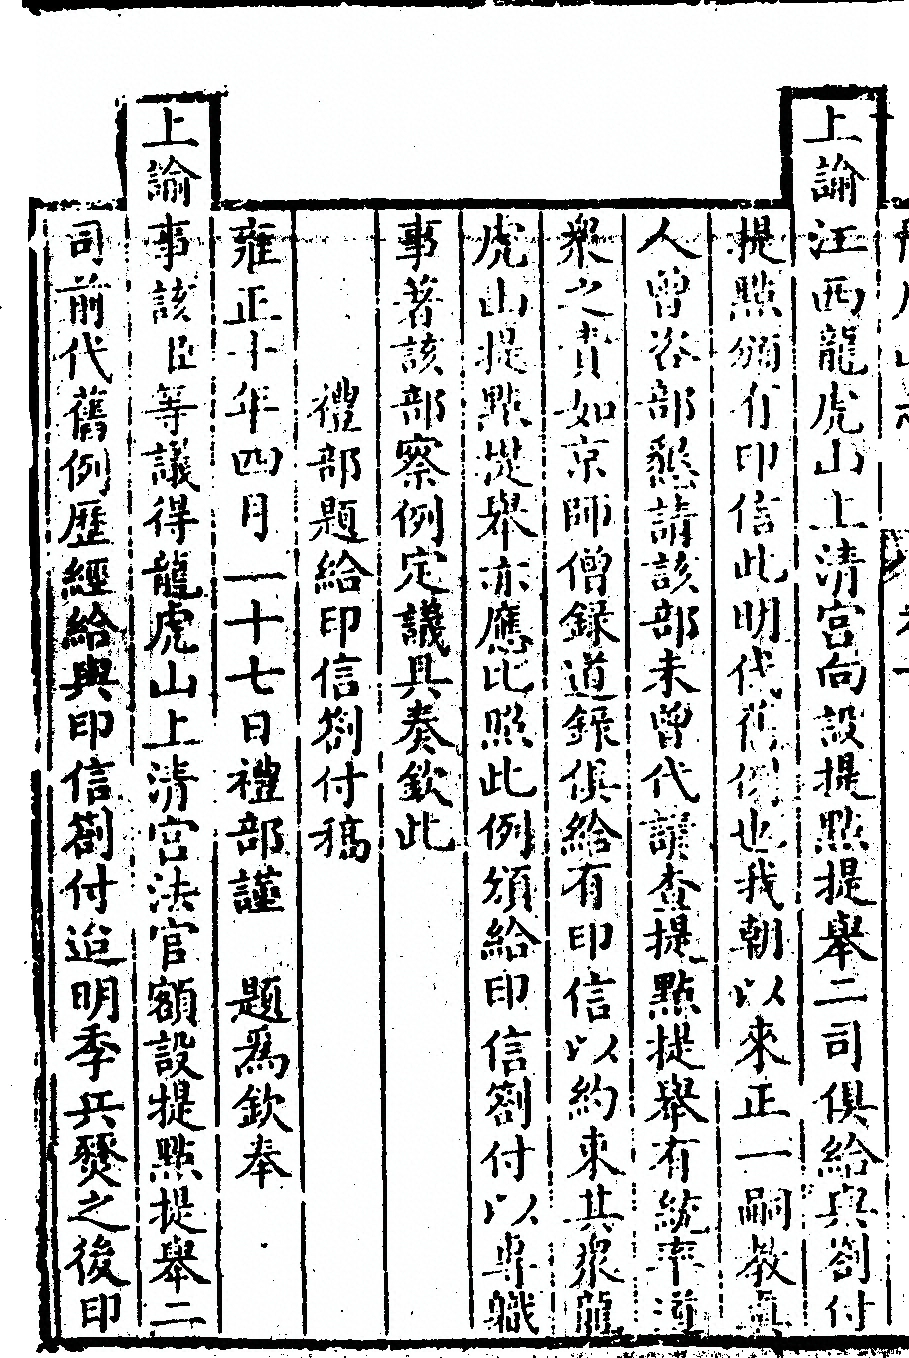 上諭江西龍虎山上清宮向設提點提舉二司俱給與劄付
提點頒有印信此明代舊例也我朝以來正一嗣教真
人曾咨部懇請該部未曾代議查提點提舉有統率道
衆之責如京師僧録道録俱給有印信以約束其衆龍
虎山提點提舉亦應比照此例頒給印信劄付以專職
事著該部察例定議具奏欽此
禮部題給印信劄付稿
雍正十年四月二十七日禮部謹　題爲欽奉
上諭事該臣等議得龍虎山上清宮法官額設提點提舉二
司前代舊例歷經給與印信劄付迨明季兵燹之後印